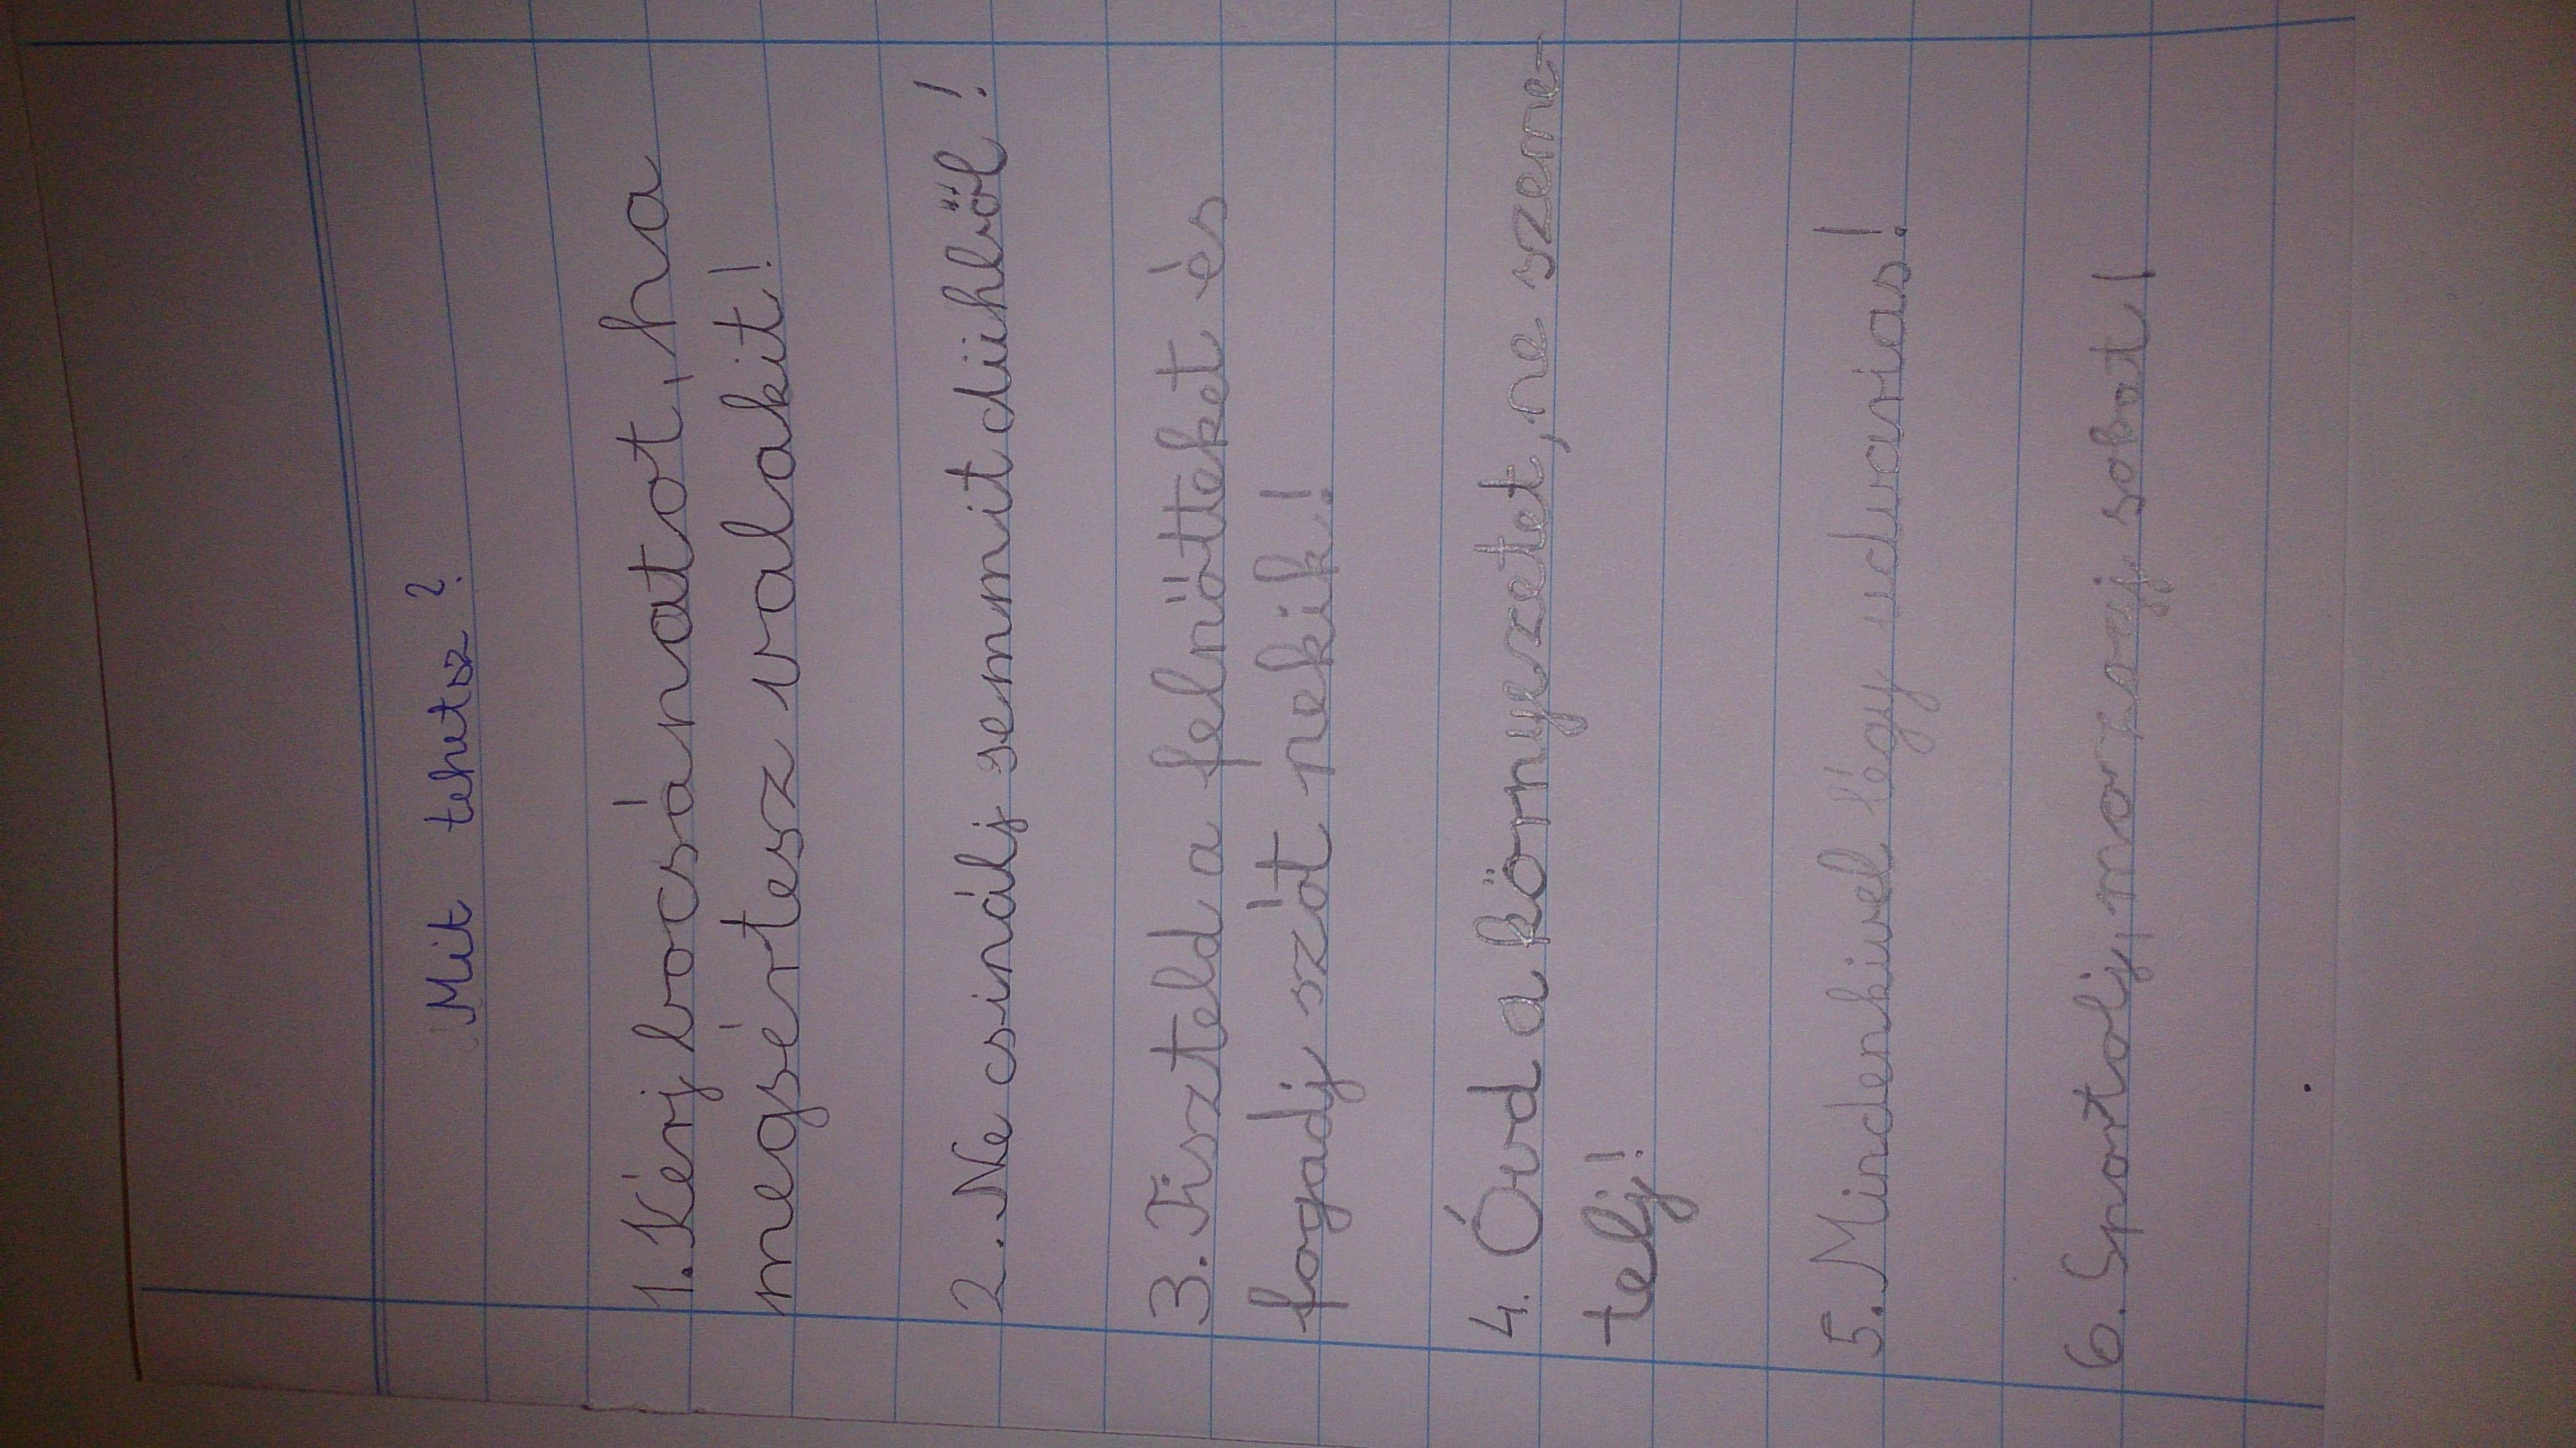 Mit tehetsz?
1. Kérj bocsánatot, ha
megsértesz valakit!
2. Ne csinálj semmit dühből!
3. Tiszteld a felnőtteket és
fogadj szót nekik!
4. Óvd a környezetet, ne szeme-
telj!
5. Mindenkivel légy udvarias!
6. Sportolj, mozogj sokat!